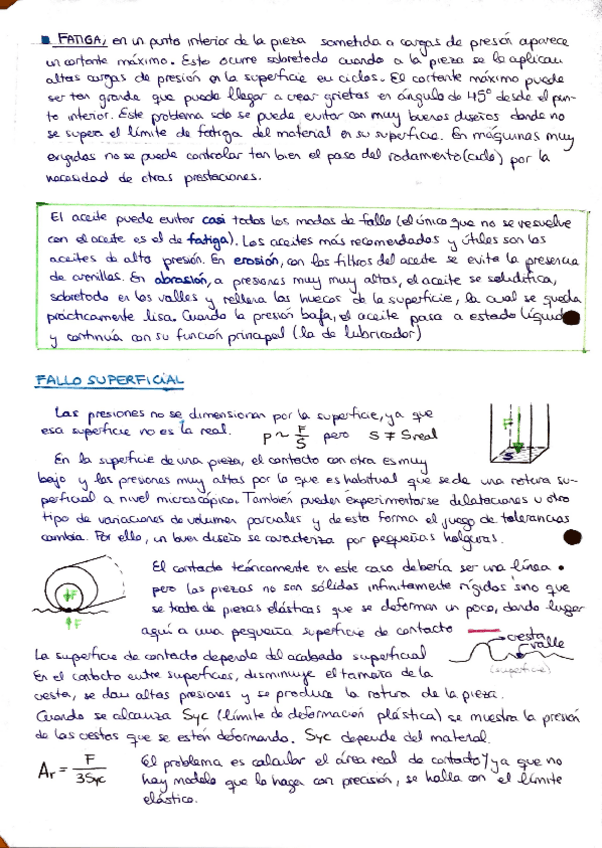 FATIGA, en un punto interior de la pieza sometida a cargas de presión aparece
un cortante máximo. Esto ocurre sobretodo cuando a la pieza se le aplican
altas cargas de presión en la superficie en ciclos. El cortante máximo puede
ser tan grande que puede llegar a crear grietas en ángulo de 45º desde el pun-
to interior. Este problema solo se puede evitar con muy buenos diseños donde no
se supera el límite de fatiga del material en su superficie. En máquinas muy
exigidas no se puede controlar tan bien el paso del rodamiento (ciclo) por la
necesidad de otras prestaciones.
El aceite puede evitar casi todos los modos de fallo (el único que no se resuelve
con el aceite es el de fatiga). Los aceites más recomendados y útiles son los
aceites de alta presión. En erosión, con los filtros del aceite se evita la presencia
de arenillas. En abrasión, a presiones muy muy altas, el aceite se solidifica,
sobretodo en los valles y rellena los huecos de la superficie, la cual se queda
prácticamente lisa. Cuando la presión baja, el aceite pasa a estado líquido
y continúa con su función principal (la de lubricador)
FALLO SUPERFICIAL
Las presiones no se dimensionan por la superficie, ya que
esa superficie no es la real. P ~ F/S pero S ≠ Sreal
F
S
En la superficie de una pieza, el contacto con otra es muy
bajo y las presiones muy altas por lo que es habitual que se de una rotura su-
perficial a nivel microscópico. También pueden experimentarse dilataciones u otro
tipo de variaciones de volumen parciales y de esta forma el juego de tolerancias
cambia. Por ello, un buen diseño se caracteriza por pequeñas holguras.
El contacto teóricamente en este caso debería ser una línea
pero las piezas no son sólidos infinitamente rígidos sino que
se trata de piezas elásticas que se deforman un poco, dando lugar
aquí a una pequeña superficie de contacto
F
F
cresta
valle
(superficie)
La superficie de contacto depende del acabado superficial
En el contacto entre superficies, disminuye el tamaño de la
cresta, se dan altas presiones y se produce la rotura de la pieza.
Cuando se alcanza Syc (límite de deformación plástica) se muestra la presión
de las crestas que se estén deformando. Syc depende del material.
Ar = F/3Syc
El problema es calcular el área real de contacto y ya que no
hay modelo que lo haga con precisión, se halla con el límite
elástico.